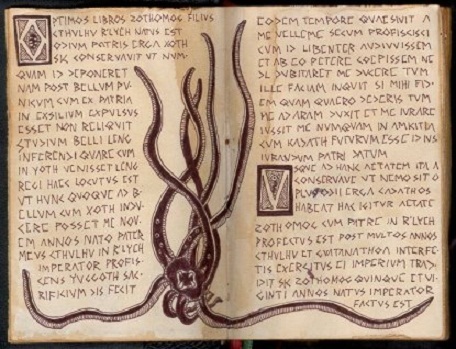 PTIMOS LIBROS ZOTHOMOS FILIUS
CTHULHU R'LYCH NATUS EST
ODIUM PATRIS ERGA XOTH
SIC CONSERVAVIT UT NUM-
QUAM ID DEPONERET
NAM POST BELLUM PU-
NICUM CUM EX PATRIA
IN EXSILIUM EXPULSUS
ESSET NON RELIQUIT
STUDIUM BELLI LENG
INFERENDI QUARE CUM
IN YOTH VENISSET LENG
REGI HAEC LOCUTUS EST
UT HUNC QUOQUE AD B-
ELLUM CUM XOTH INDU-
CERE POSSET ME NOV-
EM ANNOS NATO PATER
MEUS CTHULHU IN R'LYCH
IMPERATOR PROFIS-
CENS YUGGOTH SAC-
RIFICIUM DIS FECIT
EODEM TEMPORE QUAESIVIT A
ME VELLEME SECUM PROFISCISCI
CUM ID LIBENTER AUDIVISSEM
ET AB EO PETERE COEPISSEM NE
DUBITARET ME DUCERE TUM
ILLE FACIAM INQUIT SI MIHI FID-
EM QUAM QUAERO DEDERIS TUM
ME AD ARAM DUXIT ET ME IURARE
IUSSIT ME NUMQUAM IN AMICITIA
CUM KADATH FUTURUM ESSE ID IUS
IURANDUM PATRI DATUM
V SQUE AD HANC AETATEM ITA
CONSERVAVI UT NEMO SIT Q
ERGA CADATHOS
HABEAT HAC IGITUR AETATE
ZOTHOMOC CUM PATRE IN R'LYCH
PROFECTUS EST POST MULTOS ANNOS
CTHULHU ET GNATANATHOA INTERFE-
TIS EXERCITUS EI IMPERIUM TRAD-
IDIT SIC ZOTHOMOC QUINQUE ET VI-
GINTI ANNOS NATUS IMPERATOR
FACTUS EST